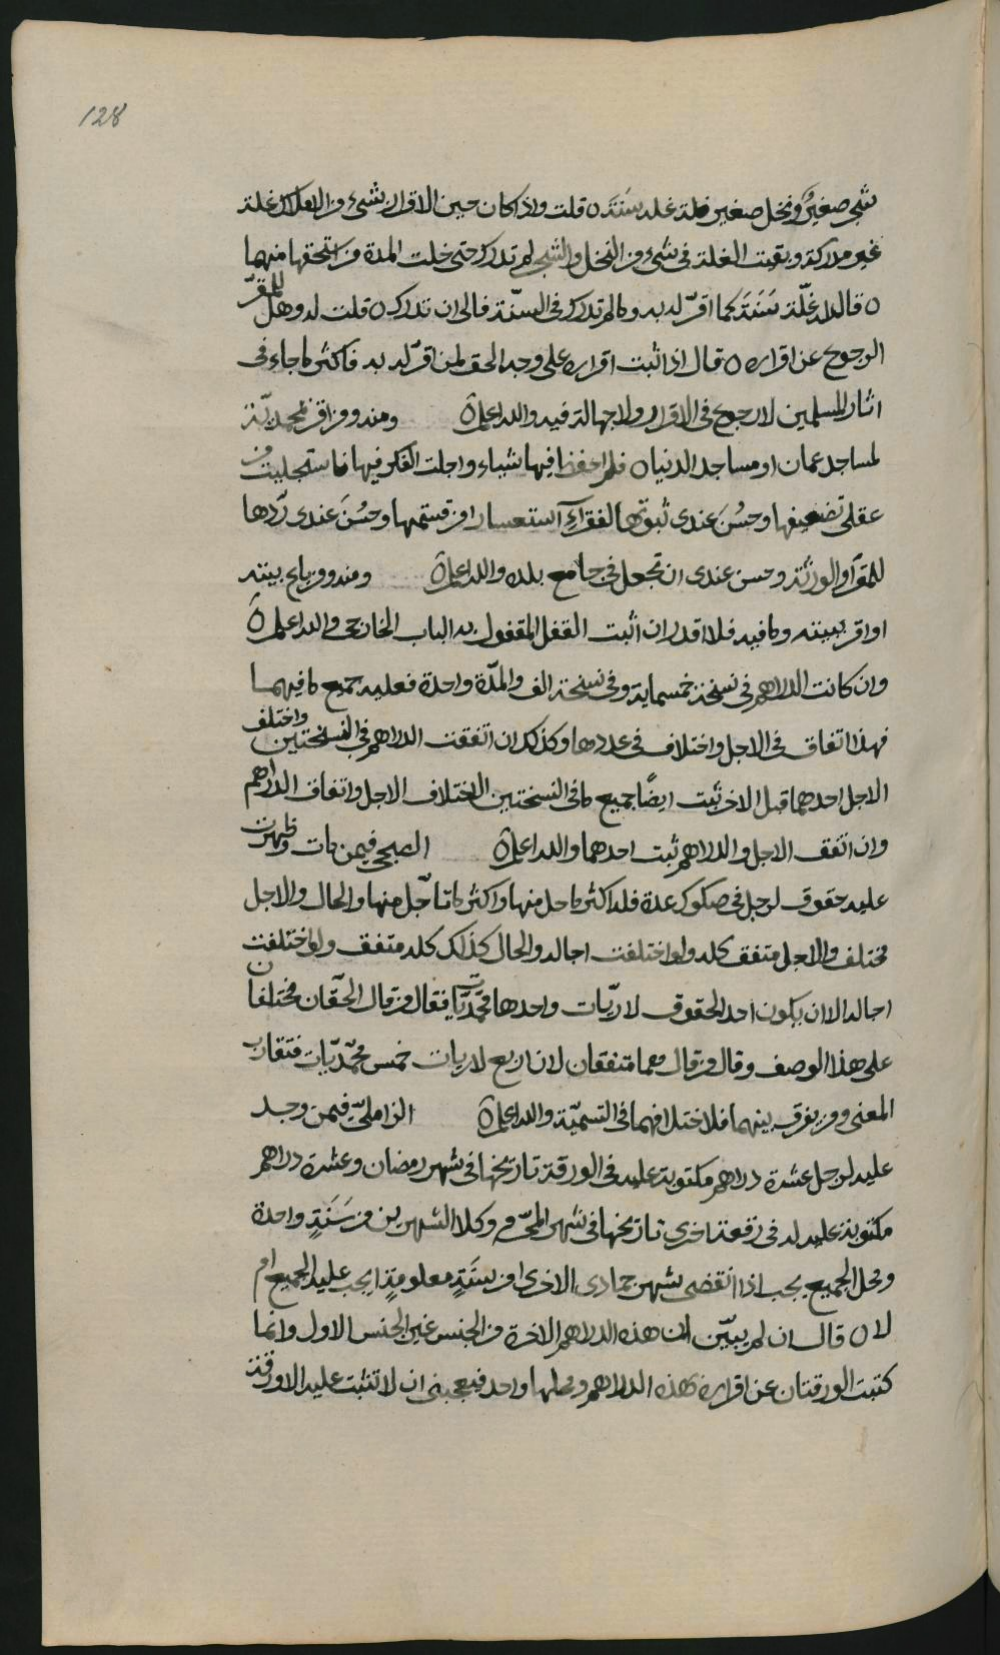 128
شجر صغير ونخل صغير فله غلة سَنَة ٥ قلت واذا كان حين الاقرار بشيء من الاملاك غلة
غير مدركة وبقيت الغلة في شيء من النخل والشجر لم تدرك حتى خلت المدة من يستحقها منهما
٥ قال له غلّة سَنَة كما اقرّ له به وما لم تدرك في السنّة فالى ان تدرك ٥ قلت له وهل للمقرّ
الرجوع عن اقراره ٥ قال اذا ثبت اقراره على وجه الحق لمن اقرّ له به فاكثر ما جاء في
اثار المسلمين لا رجوع في الاقرار ولا جهالة فيه والله اعلم ٥ ومنه ومن اقر بمحمديّة
لمساجد عمان او مساجد الدنيا ٥ فلم احفظ فيها شياء واجلت الفكر فيها فاستجليت من
عقلي تضعيفها وحسُنَ عندي ثبوتها للفقرآء استعسار امر قسمتها وحسُنَ عندي ردّها
للمقرّ او الورثة وحسن عندي ان تجعل في جامع بلده والله اعلم ٥ ومنه ومن باع بيته
او اقر ببيته وما فيه فلا اقدر ان اثبت القفل المقفول به الباب الخارجي والله اعلم ٥
وان كانت الدراهم في نسخة خمسماية وفي نسخة الف والمدّة واحدة فعليه جميع ما فيهما
فهذا اتفاق في الاجل واختلاف في عددها وكذلك ان اتفقت الدراهم في النسختين واختلف
الاجل احدهما قبل الاخر ثبت ايضًا جميع ما في النسختين لاختلاف الاجل واتفاق الدراهم
وان اتفق الاجل والدراهم ثبت احدهما والله اعلم ٥ الصبحي فيمن مات وظهرت
عليه حقوق لرجل في صكوك عدة فله اكثر ما حل منها واكثر ما تاجّل منها والحال والاجل
مختلف والاجل متفق كله ولو اختلفت اجاله والحال كذلك كله متفق ولو اختلفت
اجاله الا ان يكون احد الحقوق لاريّات واحدها محمّديّات فقال من قال الحقّان مختلفان
على هذا الوصف وقال من قال هما متفقان لان اربع لاريات خمس محمّديّات فتقارب
المعنى ومن يفرق بينهما فلاختلافهما في التسميّة والله اعلم ٥ الزامليّ فيمن وجد
عليه لرجل عشرة دراهم مكتوبة عليه في الورقة تاريخها في شهر رمضان وعشرة دراهم
مكتوبة عليه له في رقعة اخرى تاريخها في شهر المحرّم وكلا الشهرين من سَنَةٍ واحدة
ومحل الجميع يجب اذا انقضى شهر جمادى الاخرى من سنَةٍ معلومةٍ ايجب عليه الجميع ام
لا ٥ قال ان لم يبيّن ان هذه الدراهم الاخرة من الجنس غير الجنس الاول وانما
كتبت الورقتان عن اقراره بهذه الدراهم ومحلها واحد فيعجبني ان لا تثبت عليه الا ورقة